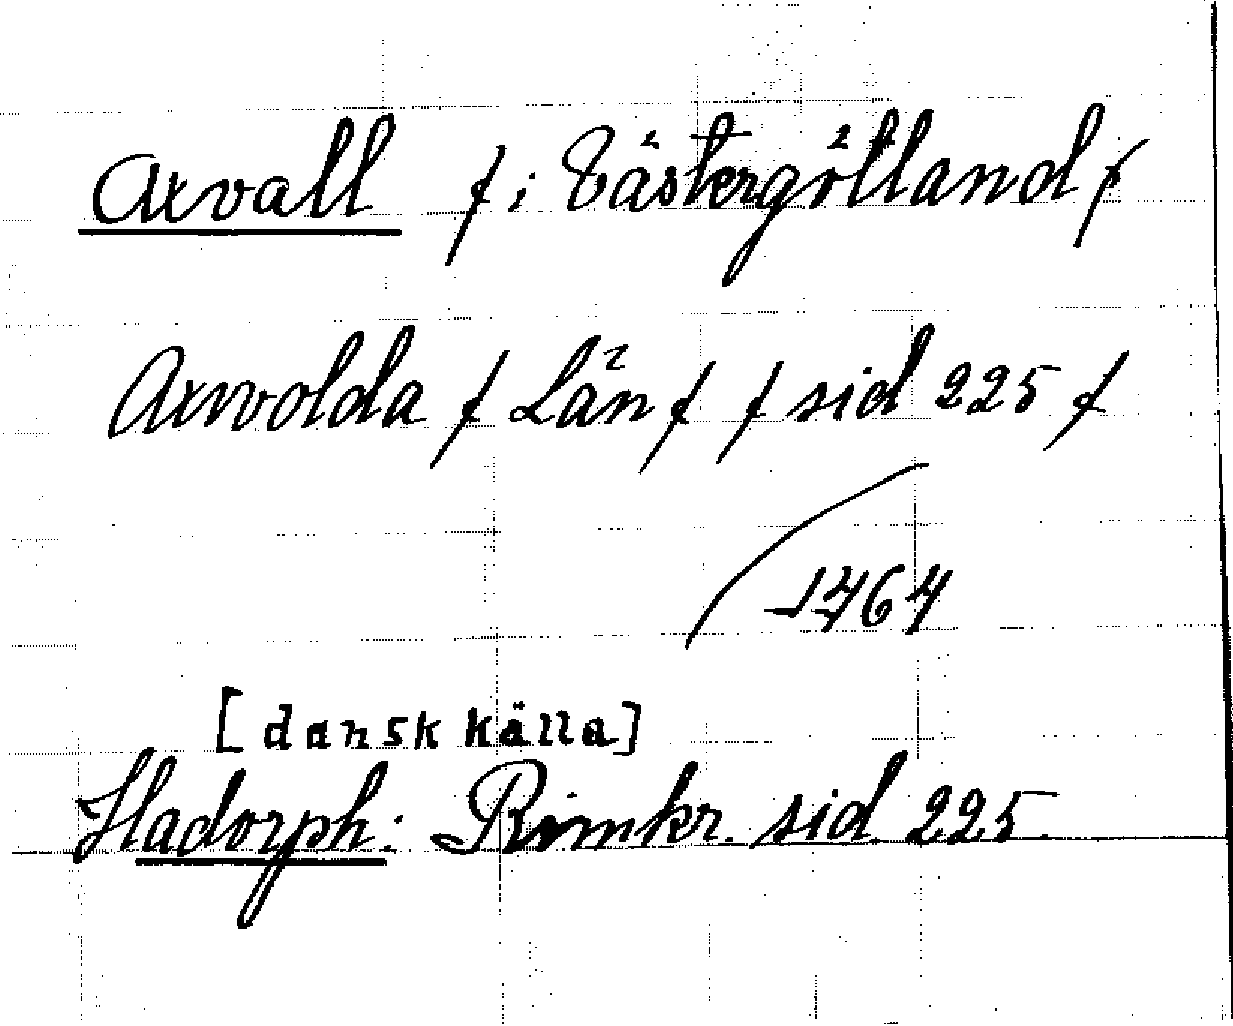 Axvall / i Västergötland /
Axwolda / Län / / sid 225 /
1464
[dansk källa]
Hadorph: Rimkr. sid. 225.